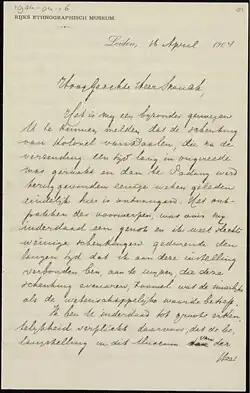 RIJKS ETHNOGRAPHISCH MUSEUM.
Leiden, 16 April 1904
Hoog Geachte Heer Snouck,
Het is mij een bijzonder genoegen
U te kunnen melden dat de schenking
van Kolonel van Daalen, die na de
verzending een tijd lang in ongereede
was geraakt en dan te Padang werd
terug gevonden eenige weken geleden
eindelijk hier is ontvangen. Het uit-
pakken der voorwerpen, was mij
inderdaad een genot en ik weet slechts
weinige schenkingen gedurende den
langen tijd dat ik aan deze instelling
verbonden ben, aan te wijzen, die deze
schenking evenaren, zoowel wat de
als de wetenschappelijke waarde betreft.
Ik ben U inderdaad tot groote erken-
telijkheid verplicht daarvoor, dat de be-
langstelling in dit Museum van der